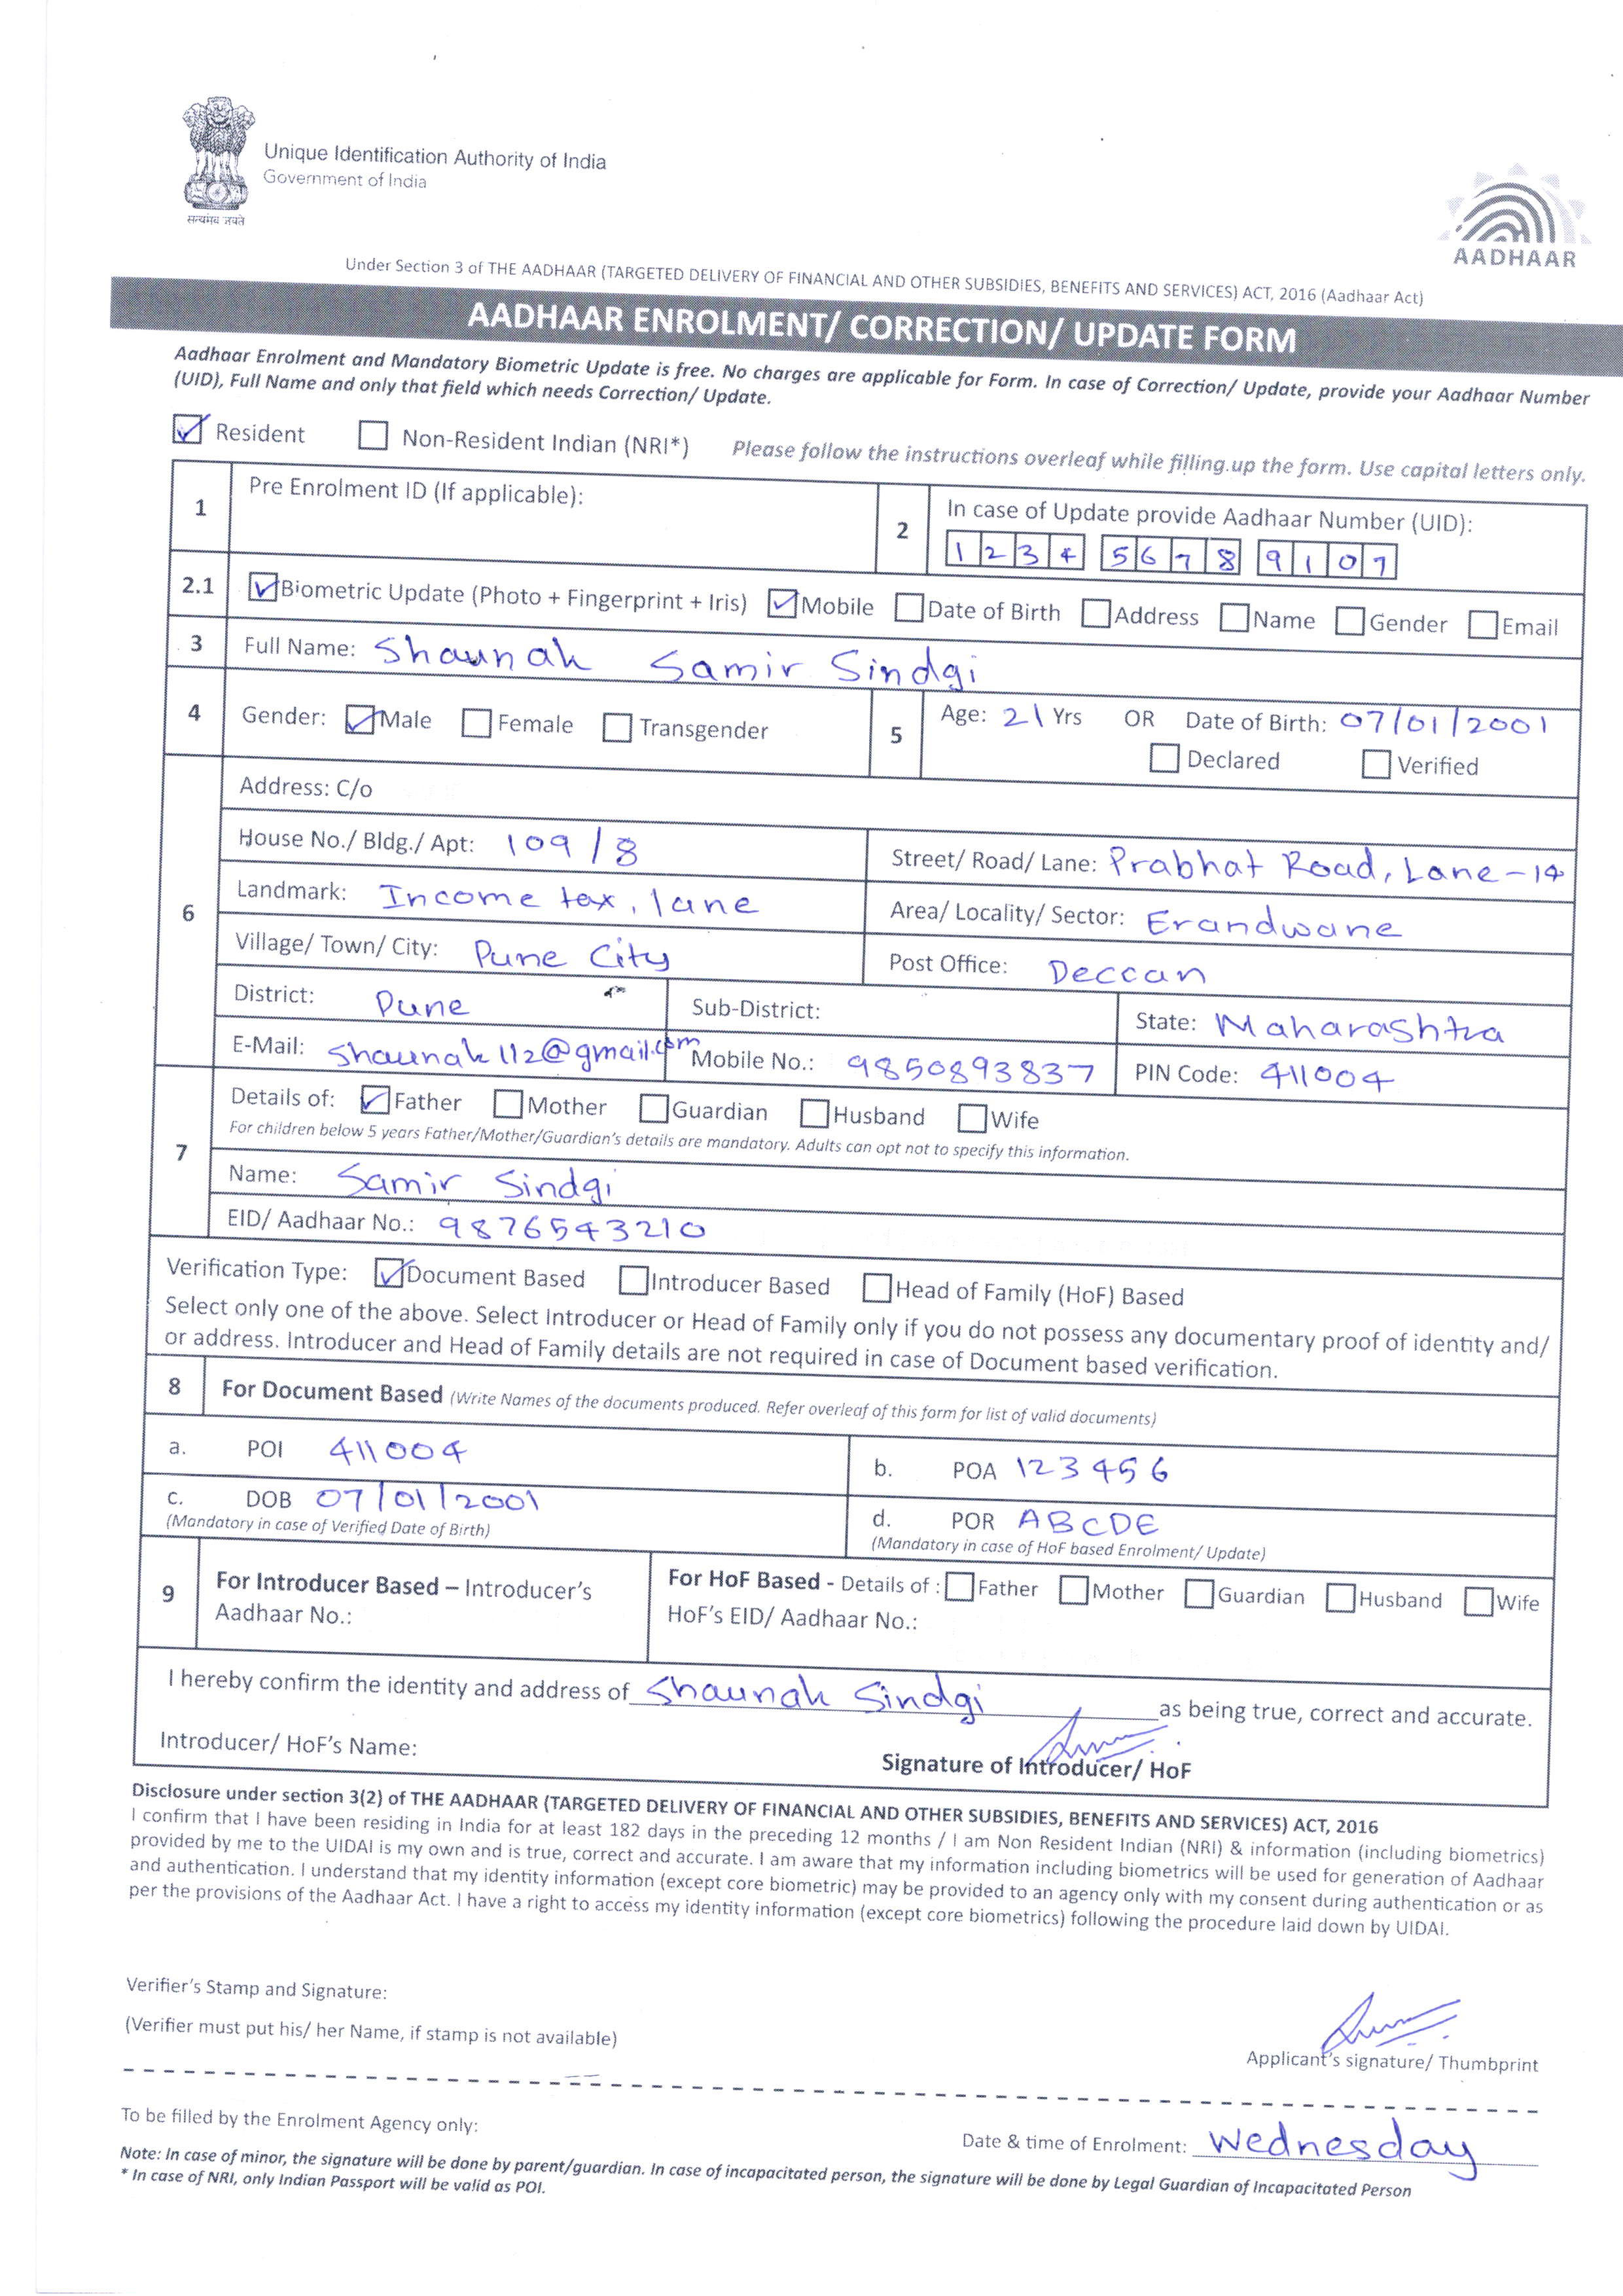 सत्यमेव जयते
Unique Identification Authority of India
Government of India
AADHAAR
Under Section 3 of THE AADHAAR (TARGETED DELIVERY OF FINANCIAL AND OTHER SUBSIDIES, BENEFITS AND SERVICES) ACT, 2016 (Aadhaar Act)
AADHAAR ENROLMENT/ CORRECTION/ UPDATE FORM
Aadhaar Enrolment and Mandatory Biometric Update is free. No charges are applicable for Form. In case of Correction/ Update, provide your Aadhaar Number
(UID), Full Name and only that field which needs Correction/ Update.
Resident Non-Resident Indian (NRI*) Please follow the instructions overleaf while filling up the form. Use capital letters only.
1 Pre Enrolment ID (If applicable):
2 In case of Update provide Aadhaar Number (UID):
1234 5678 9107
2.1 Biometric Update (Photo + Fingerprint + Iris) Mobile Date of Birth Address Name Gender Email
3 Full Name: Shaunak Samir Sindgi
4 Gender: Male Female Transgender
5 Age: 21 Yrs OR Date of Birth: 07/01/2001
Declared Verified
6 Address: C/o
House No./ Bldg./ Apt: 109/8 Street/ Road/ Lane: Prabhat Road, Lane-14
Landmark: Income tax, lane Area/ Locality/ Sector: Erandwane
Village/ Town/ City: Pune City Post Office: Deccan
District: Pune Sub-District: State: Maharashtra
E-Mail: shaunak112@gmail.com Mobile No.: 9850893837 PIN Code: 411004
7 Details of: Father Mother Guardian Husband Wife
For children below 5 years Father/Mother/Guardian's details are mandatory. Adults can opt not to specify this information.
Name: Samir Sindgi
EID/ Aadhaar No.: 9876543210
Verification Type: Document Based Introducer Based Head of Family (HoF) Based
Select only one of the above. Select Introducer or Head of Family only if you do not possess any documentary proof of identity and/
or address. Introducer and Head of Family details are not required in case of Document based verification.
8 For Document Based (Write Names of the documents produced. Refer overleaf of this form for list of valid documents)
a. POI 411004 b. POA 123456
c. DOB 07/01/2001 d. POR ABCDE
(Mandatory in case of Verified Date of Birth) (Mandatory in case of HoF based Enrolment/ Update)
9 For Introducer Based – Introducer's
Aadhaar No.:
For HoF Based - Details of : Father Mother Guardian Husband Wife
HoF's EID/ Aadhaar No.:
I hereby confirm the identity and address of Shaunak Sindgi as being true, correct and accurate.
Introducer/ HoF's Name: Signature of Introducer/ HoF
Disclosure under section 3(2) of THE AADHAAR (TARGETED DELIVERY OF FINANCIAL AND OTHER SUBSIDIES, BENEFITS AND SERVICES) ACT, 2016
I confirm that I have been residing in India for at least 182 days in the preceding 12 months / I am Non Resident Indian (NRI) & information (including biometrics)
provided by me to the UIDAI is my own and is true, correct and accurate. I am aware that my information including biometrics will be used for generation of Aadhaar
and authentication. I understand that my identity information (except core biometric) may be provided to an agency only with my consent during authentication or as
per the provisions of the Aadhaar Act. I have a right to access my identity information (except core biometrics) following the procedure laid down by UIDAI.
Verifier's Stamp and Signature:
(Verifier must put his/ her Name, if stamp is not available)
Applicant's signature/ Thumbprint
To be filled by the Enrolment Agency only:
Date & time of Enrolment: Wednesday
Note: In case of minor, the signature will be done by parent/guardian. In case of incapacitated person, the signature will be done by Legal Guardian of Incapacitated Person
* In case of NRI, only Indian Passport will be valid as POI.